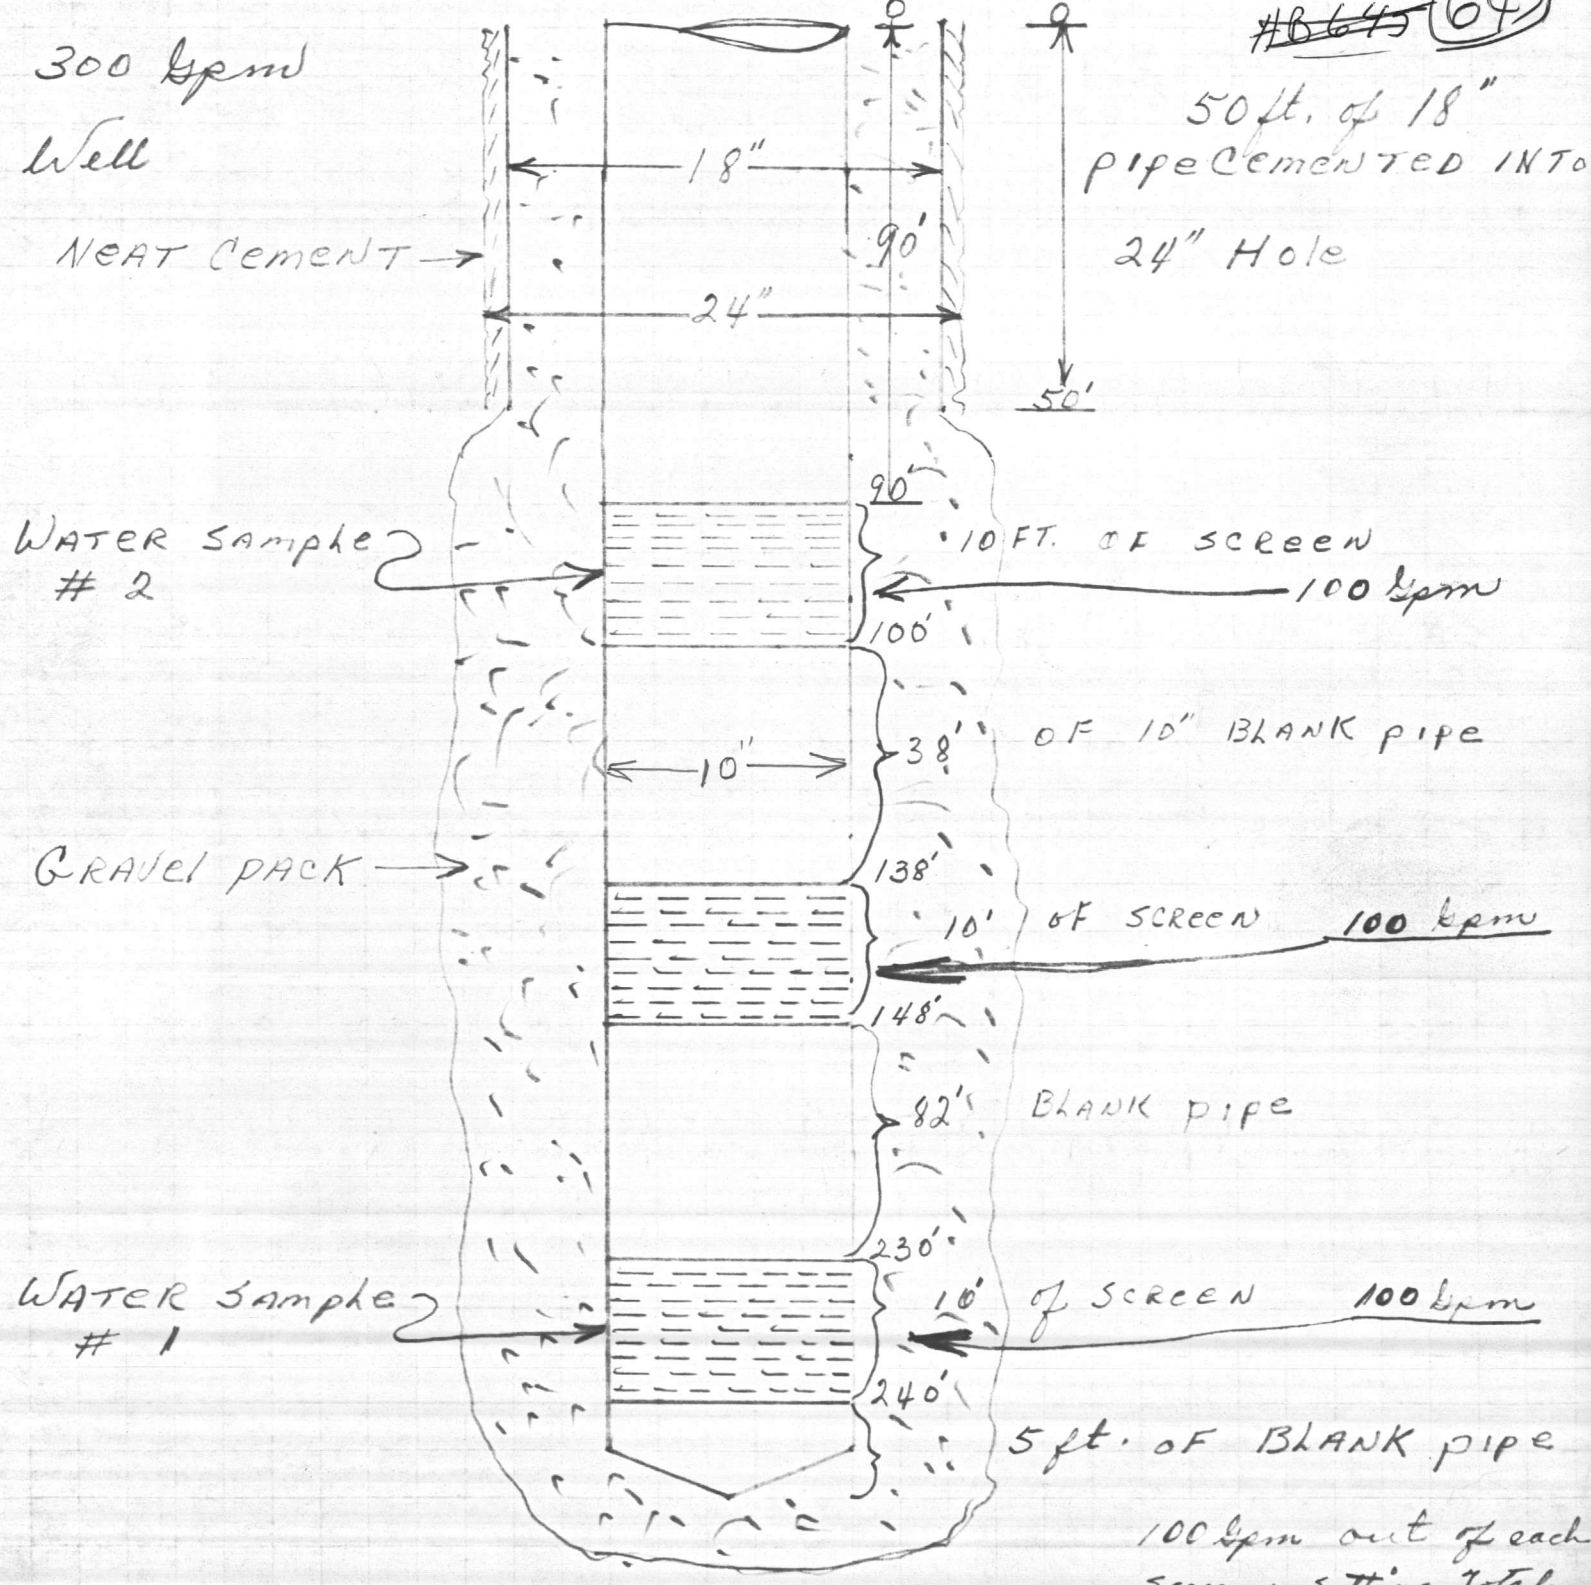 #B645 64
300 Gpm
Well
50 ft. of 18"
pipe Cemented INTO
24" Hole
18"
90'
Neat Cement
24"
50'
90'
Water Sample
# 2
10 FT. OF SCREEN
100 Gpm
100'
38' OF 10" BLANK pipe
10"
138'
Gravel pack
10' OF SCREEN 100 Gpm
148'
82' BLANK pipe
230'
Water Sample
# 1
10' of SCREEN 100 Gpm
240'
5 ft. OF BLANK pipe
100 Gpm out of each
Total